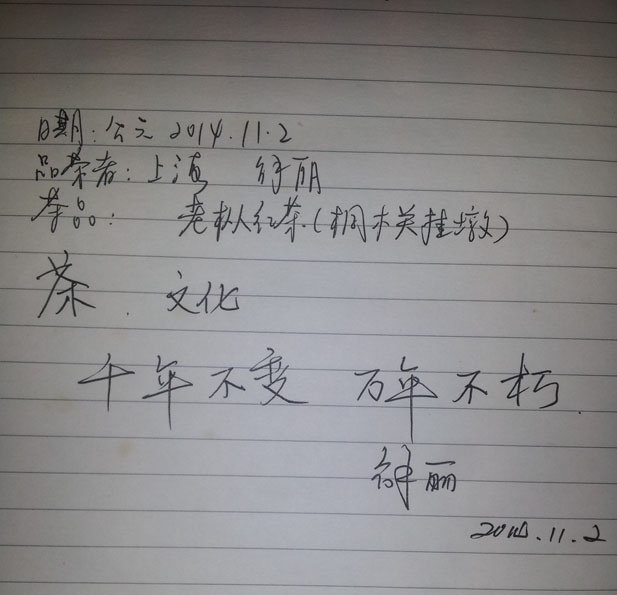 日期:公元 2014.11.2
品茶者:上海 徐丽
茶品: 老枞红茶.(桐木关挂墩)
茶.文化
千年不变 万年不朽.
徐丽
2014.11.2